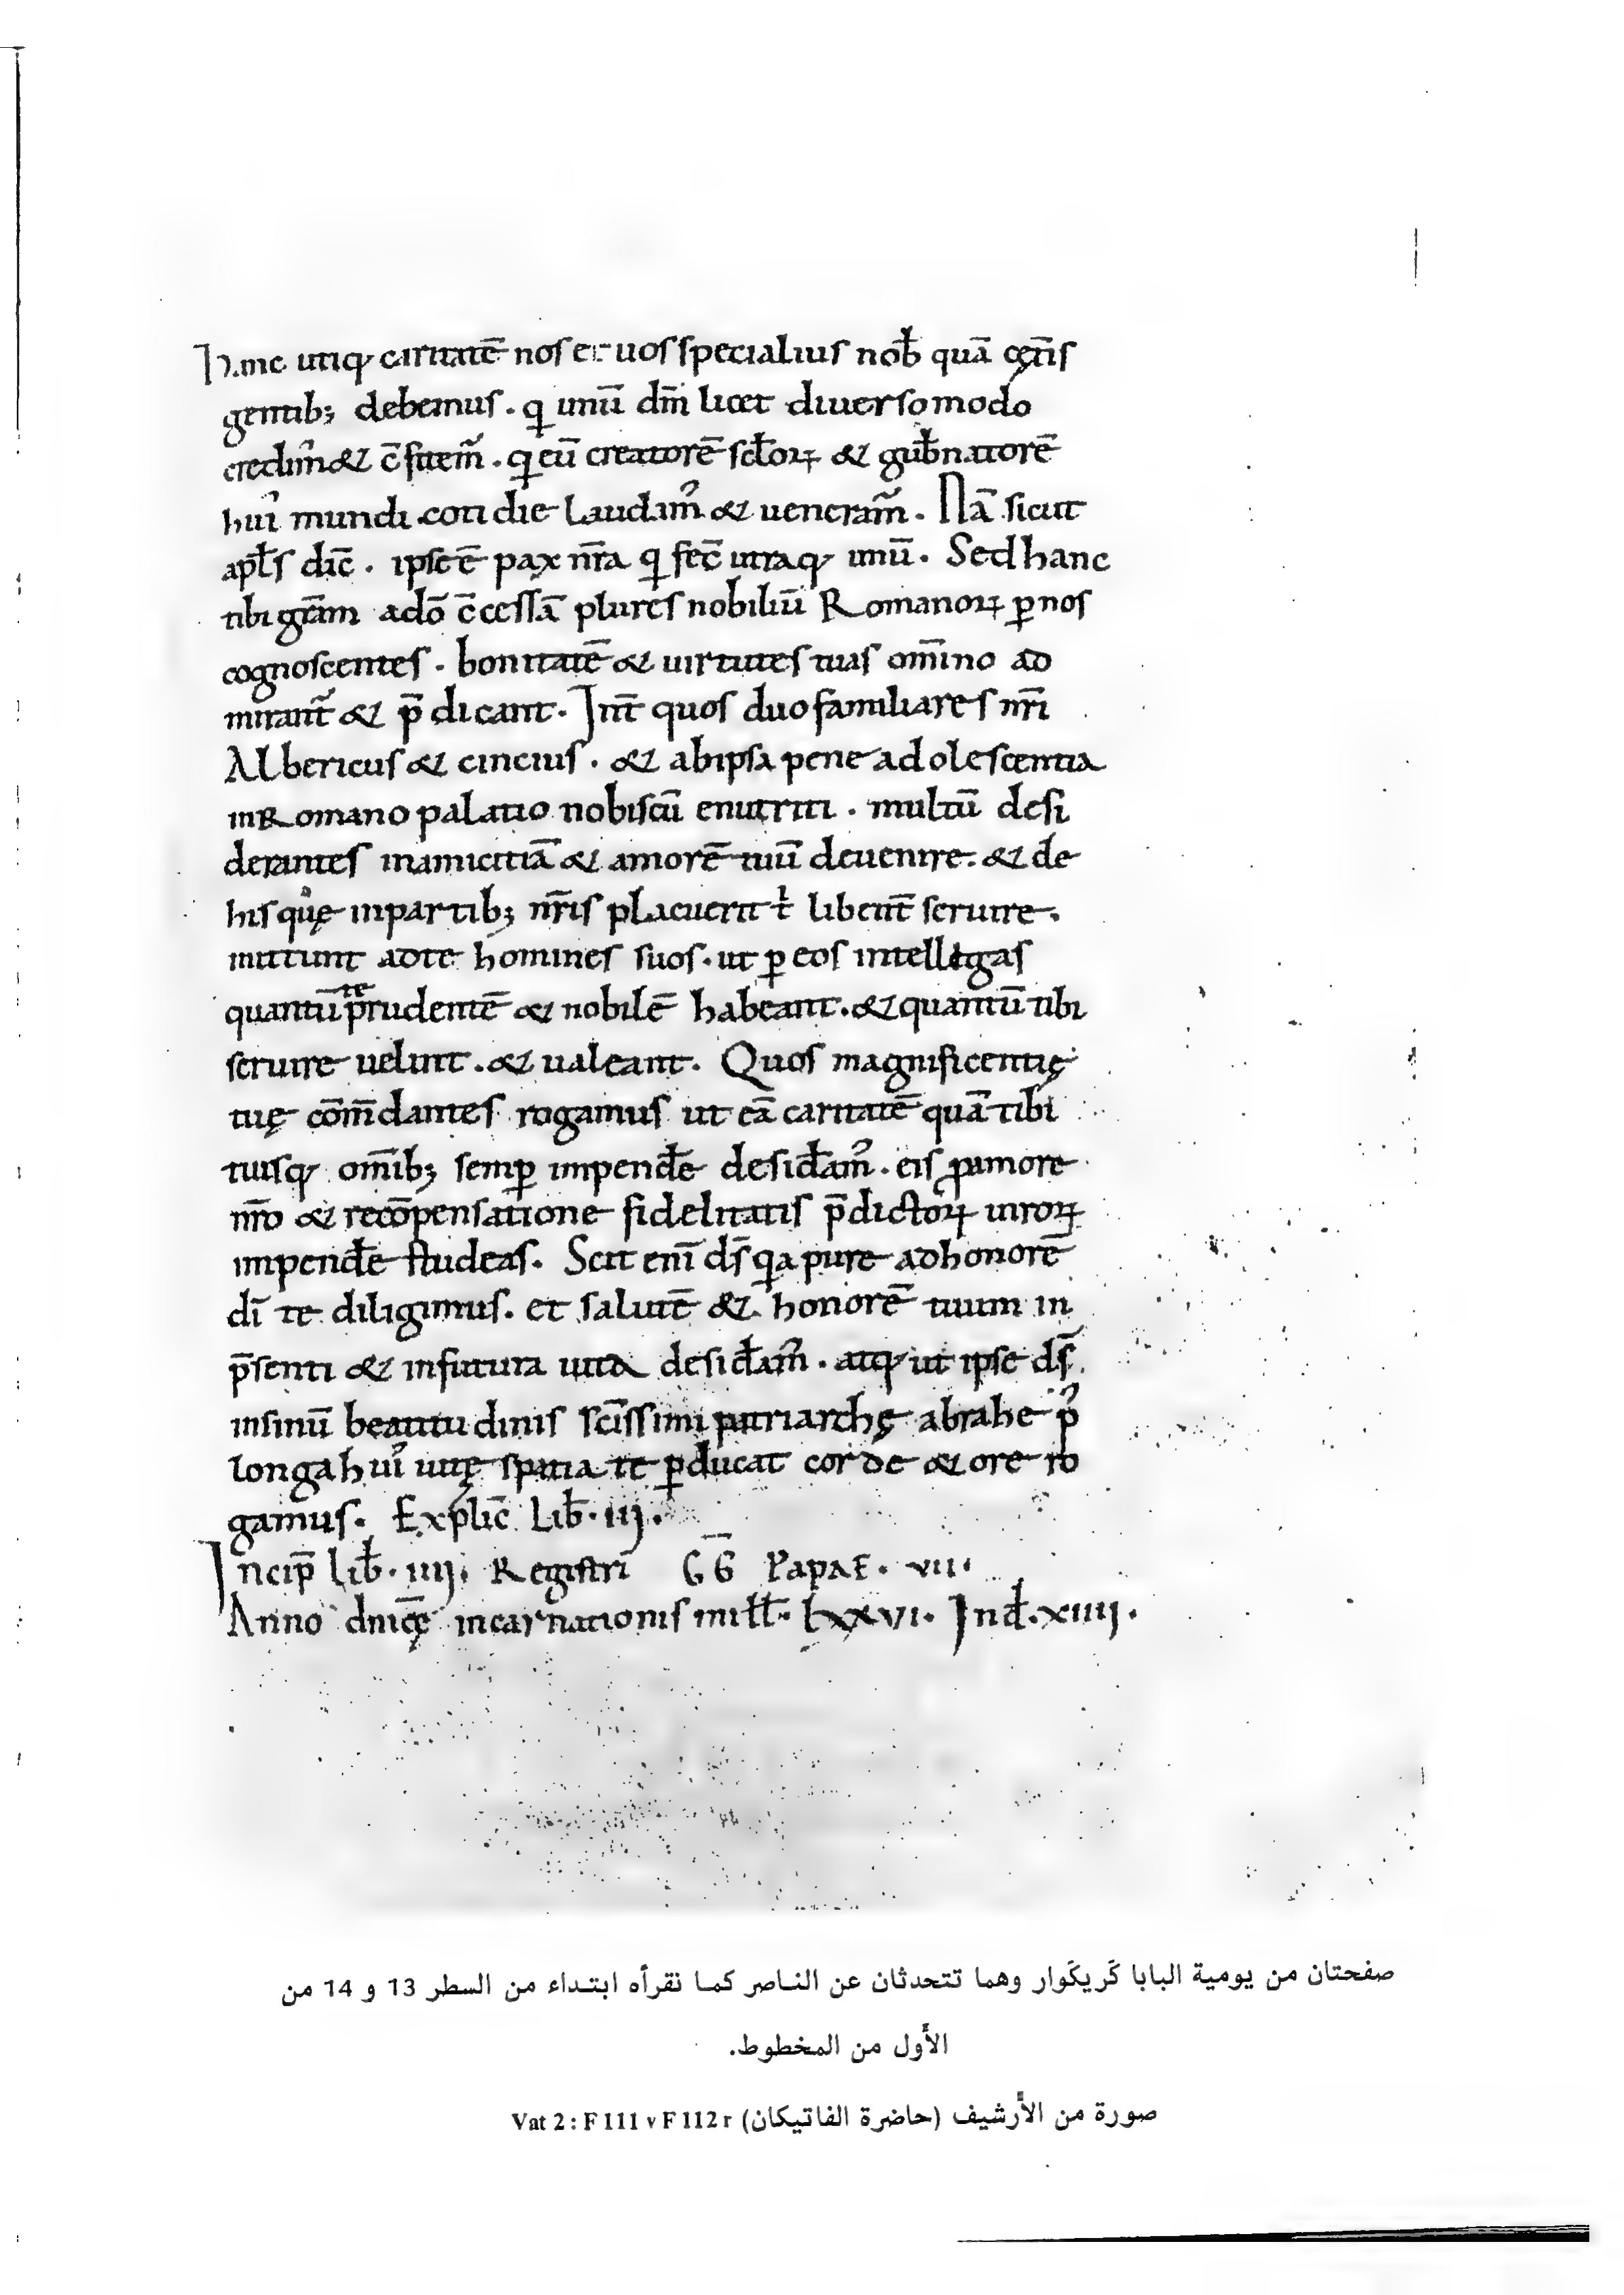 Hanc utiq; caritatē nos et uos specialius nob̄ quā cęt̄is
gentib; debemus . q unū dm̄ licet diuerso modo
credim᾽ & c̄fitem᷒ . q eū creatorē sclo℞ & gub̄natorē
hui᾽ mundi cotidie laudam᾽ & ueneram᷒ . Nā sicut
apl̄s dic̄ . ipse ē pax nr̄a q fec̄ utraq; unū . Sed hanc
tibi gr̄am a dō c̄cessā plures nobiliū Romano℞ p̱ nos
cognoscentes . bonitatē & uirtutes tuas om̄ino ad
mirant᷒ & p̄dicant . Int̄ quos duo familiares nr̄i
Albericus & cincius . & ab ipsa pene adolescentia
in Romano palatio nobiscū enutriti . multū desi
derantes in amicitiā & amorē tuū deuenire . & de
his quę in partib; nr̄is placuerit t̄ libent̄ seruire .
mittunt ad te homines suos . ut p̱ eos intellegas
quantū te prudentē & nobilē habeant . & quantū tibi
seruire uelint . & ualeant . Quos magnificentię
tuę com̄dantes rogamus ut eā caritatē quā tibi
tuisq; om̄ib; semp̱ impend̄e desid̄am᾽ . eis p amore
nr̄o & recōpensatione fidelitatis p̄dicto℞ uiro℞
impend̄e studeas . Scit enī ds̄ qa pure ad honorē
dī te diligimus . et salutē & honorē tuum in
p̄senti & in futura uita desid̄am᾽ . atq; ut ipse ds̄
in sinū beatitudinis scīssimi patriarchę abrahe p᾽
longa hui᾽ uitę spatia te p̱ducat corde & ore ro
gamus . Explic̄ Lib̄ . iij .
Incip̄ Lib̄ . iiij . Registri GG̅ Papae . vii .
Anno dnicę incarnationis mill̄ . lxxvi . Ind̄ . xiiij .
صفحتان من يومية البابا كَريكَوار وهما تتحدثان عن الناصر كما نقرأه ابتداء من السطر 13 و 14 من
الأول من المخطوط.
صورة من الأرشيف (حاضرة الفاتيكان) Vat 2 : F 111 v F 112 r